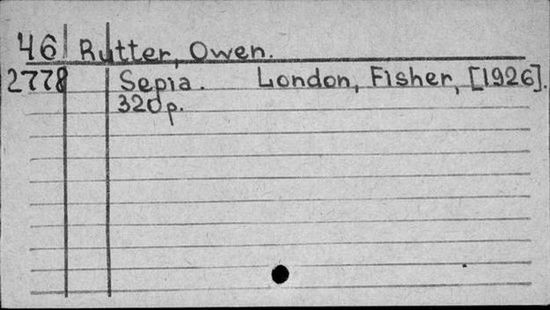 46 Rutter, Owen.
2778 Sepia. London, Fisher, [1926].
320p.